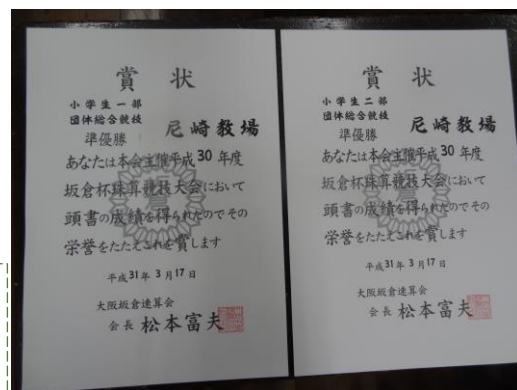 賞状
小学生一部
団体総合競技
準優勝
尼崎教場
あなたは本会主催平成30年度
坂倉杯珠算競技大会において
頭書の成績を得られたのでその
栄誉をたたえこれを賞します
平成31年3月17日
大阪坂倉速算会
会長 松本富夫
賞状
小学生二部
団体総合競技
準優勝
尼崎教場
あなたは本会主催平成30年度
坂倉杯珠算競技大会において
頭書の成績を得られたのでその
栄誉をたたえこれを賞します
平成31年3月17日
大阪坂倉速算会
会長 松本富夫